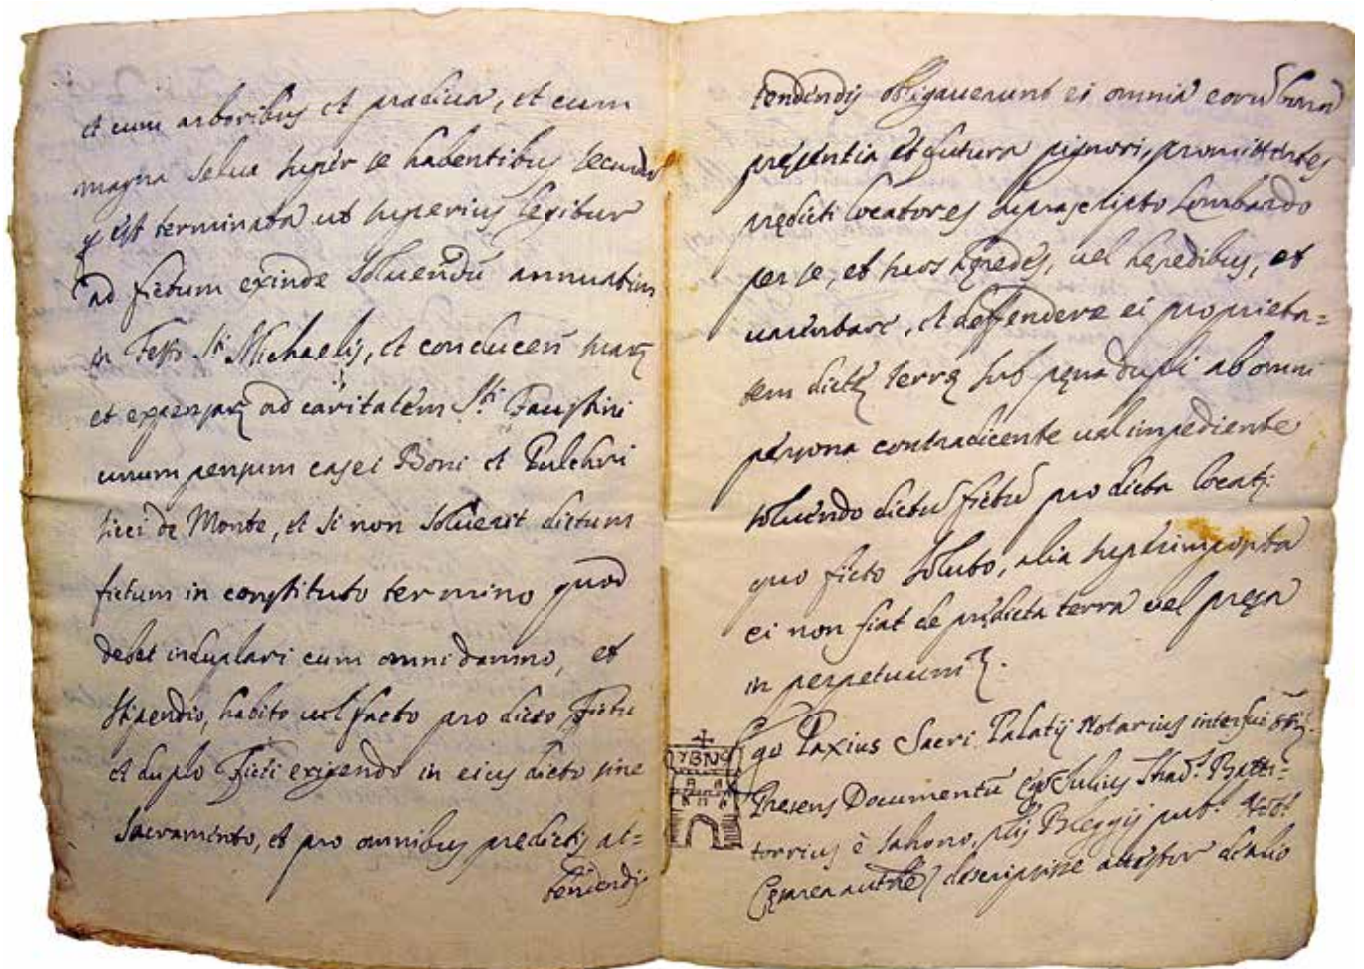 et cum arboribus et pradiua, et cum
magna selua super se habentibus secundu
est terminata ut superius legitur
ad fictum exinde soluendū annuatim
in Festo Sti Michaelis, et conducen
et expensa ad caritatem Sti Faustini
unum pensum casei Boni et Pulchri
sicci de Monte, et si non soluerit dictum
fictum in constituto termino quod
debet induplari cum omni damno, et
stipendio, habito uel facto pro dicto Fictu
et duplo Ficti exigendo in eius dicto sine
Sacramento, et pro omnibus predictis at=
tendendis
tendendis obligauerunt ei omnia eorū bona
presentia et futura pignori, promittentes
predicti locatores suprascripto Lombardo
per se, et suos heredes, uel heredibus, et
uarentare, et deffendere ei proprieta=
tem dictę terrę sub pęna dupli ab omni
persona contradicente uel impediente
soluendo dictū fictū pro dicta locat:
quo ficto soluto, alia superimposta
ei non fiat de predicta terra uel
in perpetuum
7BN9
Ego Paxius Sacri Palatij Notarius interfui
Presens Documentū ego Julius Batti=
torrius è Sahono, plis Bleggij pub: Not:
Cęsarea descripsisse attestor ab alio